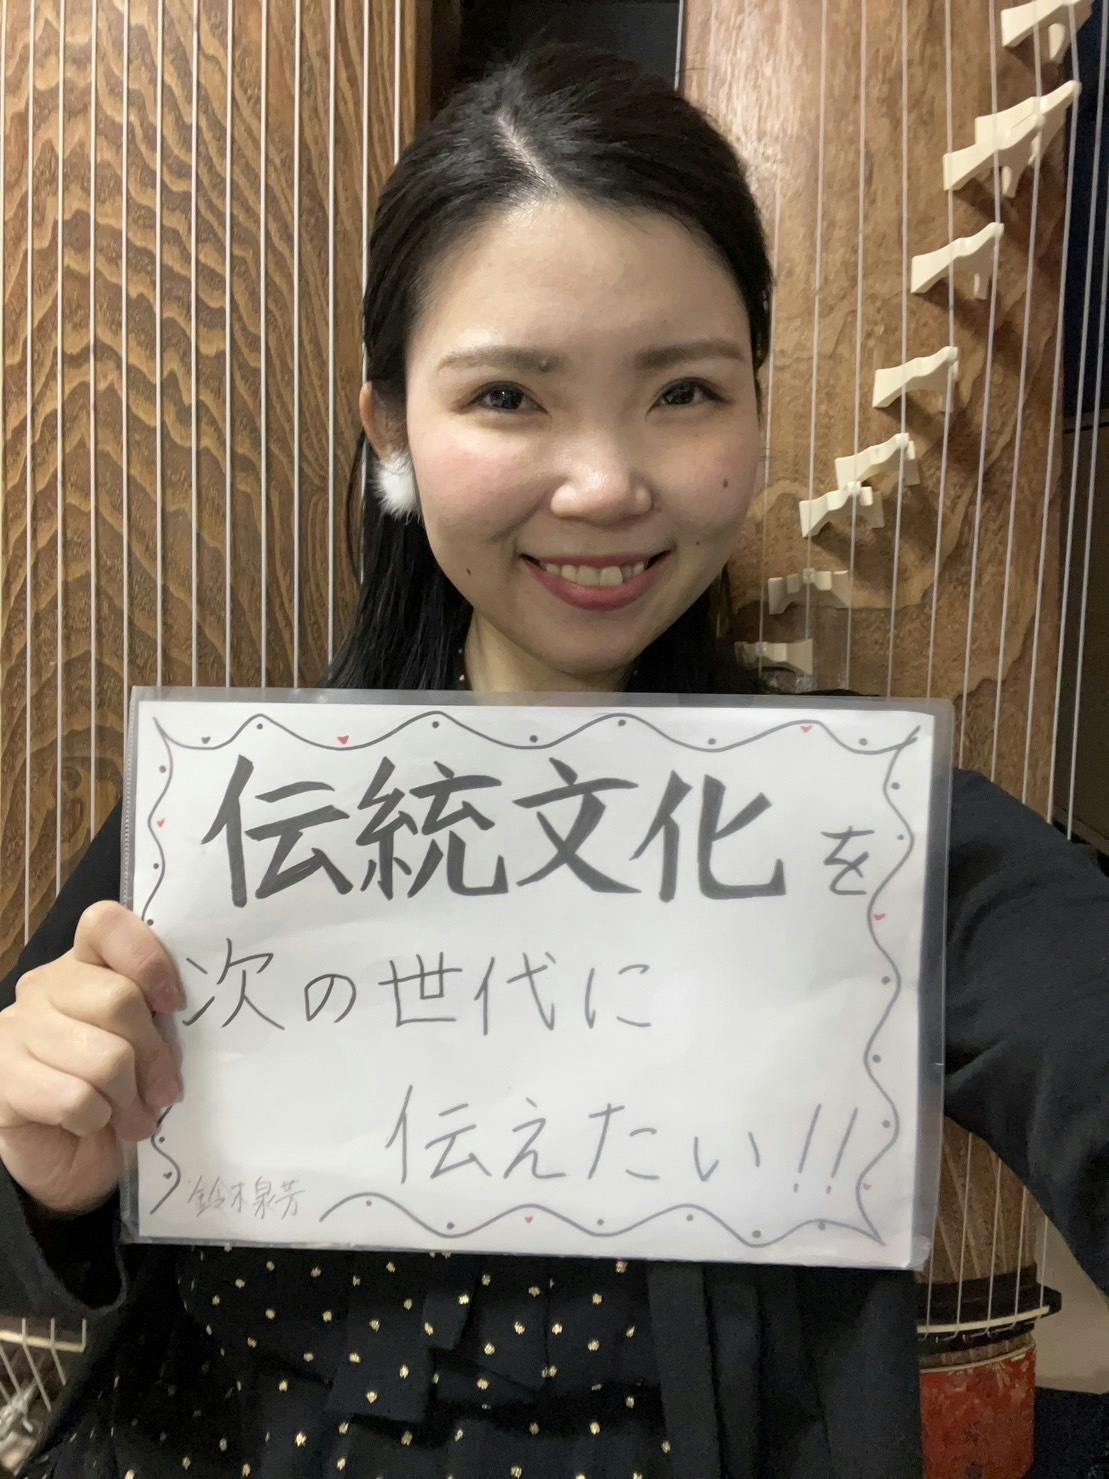 伝統文化を
次の世代に
伝えたい!!
鈴木泉芳